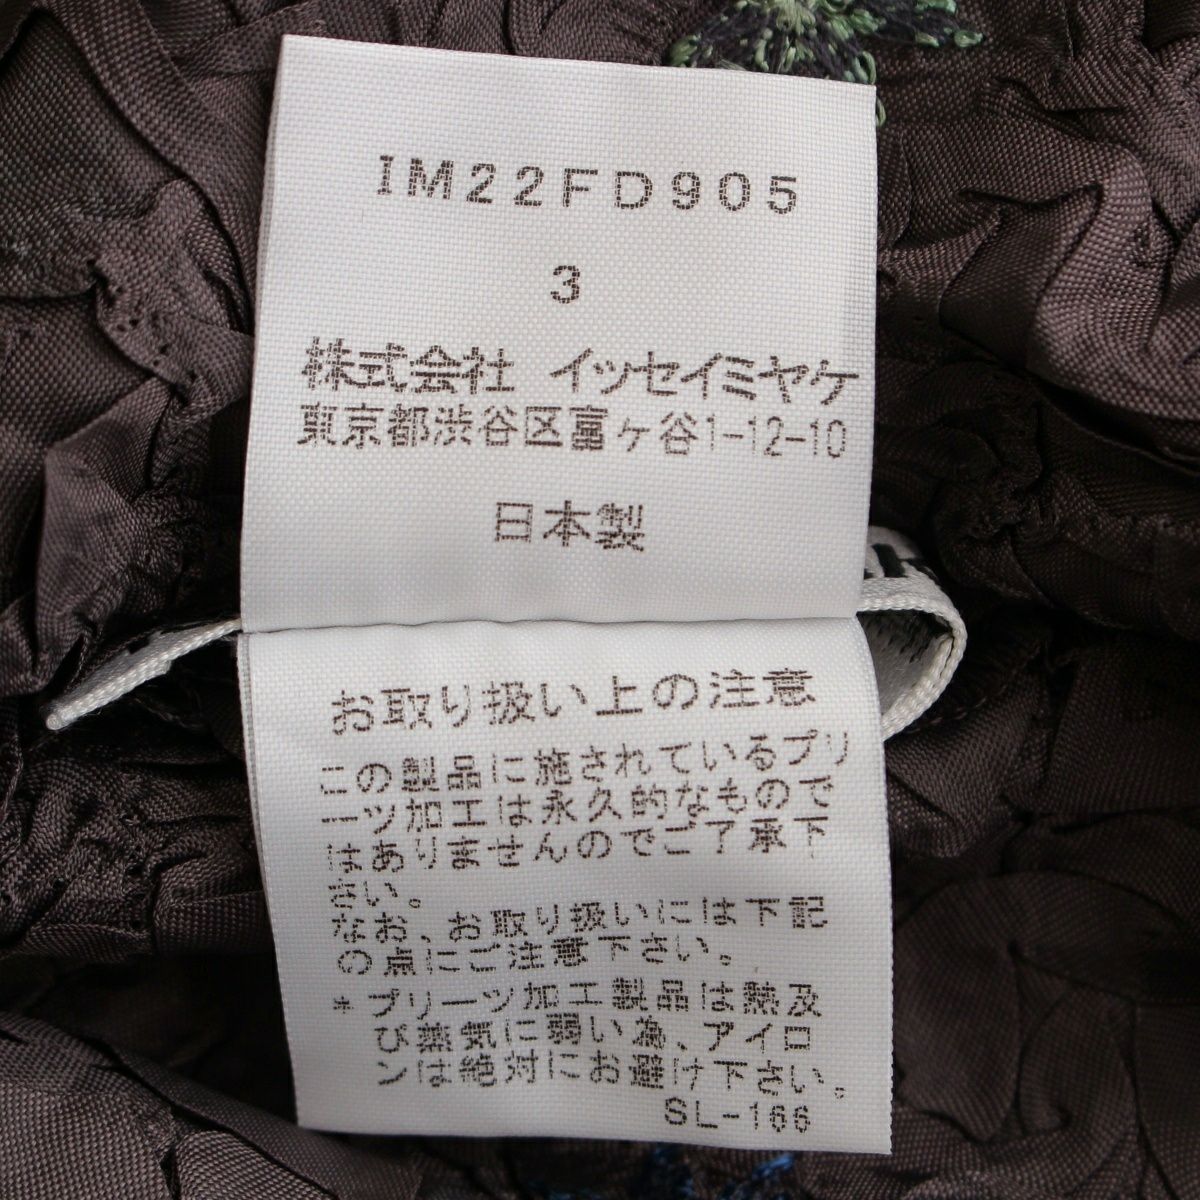 IM22FD905
3
株式会社 イッセイミヤケ
東京都渋谷区富ヶ谷1-12-10
日本製
お取り扱い上の注意
この製品に施されているプリ
ーツ加工は永久的なもので
はありませんのでご了承下
さい。
なお、お取り扱いには下記
の点にご注意下さい。
*プリーツ加工製品は熱及
び蒸気に弱い為、アイロ
ンは絶対にお避け下さい。
SL-166